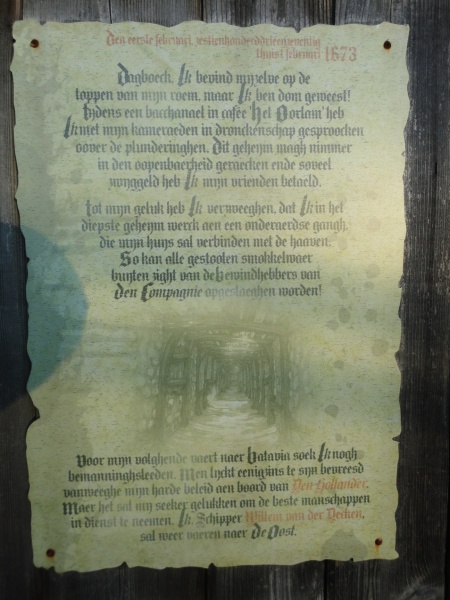 Den eerste februari, zestienhonderddrieenzeventig
1673
Dagboeck, Ik bevind mijzelve op de
toppen van mijn roem, maar Ik ben dom geweest!
Tijdens een bacchanael in cafée 'Het Oorlam' heb
Ik met mijn kameraeden in dronckenschap gesproocken
oover de plunderinghen. Dit geheym magh nimmer
in den oopenbaerheid geraecken ende soveel
zwijggeld heb Ik mijn vrienden betaeld.
Tot mijn geluk heb Ik verzweeghen, dat Ik in het
diepste geheym werck aen een onderaerdse gangh,
die mijn huys sal verbinden met de haaven.
So kan alle gestoolen smokkelwaer
buyten zight van de Bewindhebbers van
den Compagnie opgeslaeghen worden!
Voor mijn volghende vaert naer Batavia soek Ik nogh
bemanninghsleeden. Men lijckt eenigzins te zijn bevreesd
vanweeghe mijn harde beleid aen boord van Den Hollander.
Maer het sal mij seeker gelukken om de beste manschappen
in dienst te neemen. Ik, Schipper Willem van der Decken,
sal weer vaeren naer De Oost.